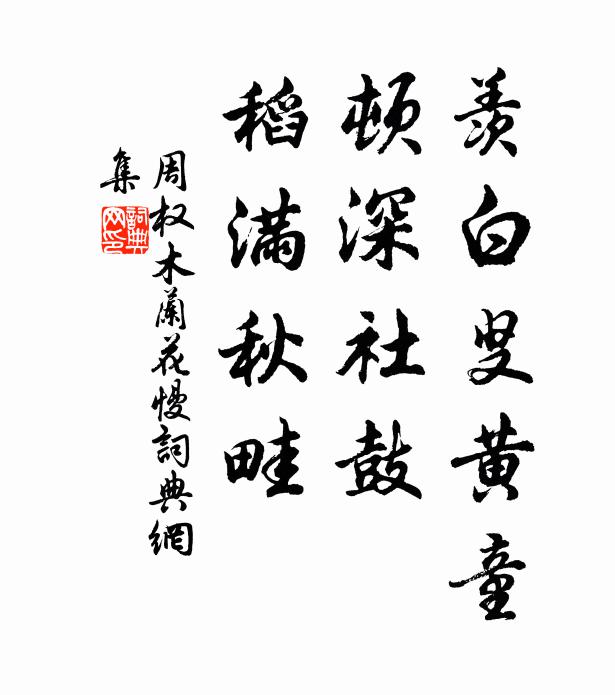 羨白叟黄童
頓深社鼓
稻滿秋畦
周权木蘭花慢詞典網
集
詞典
网印